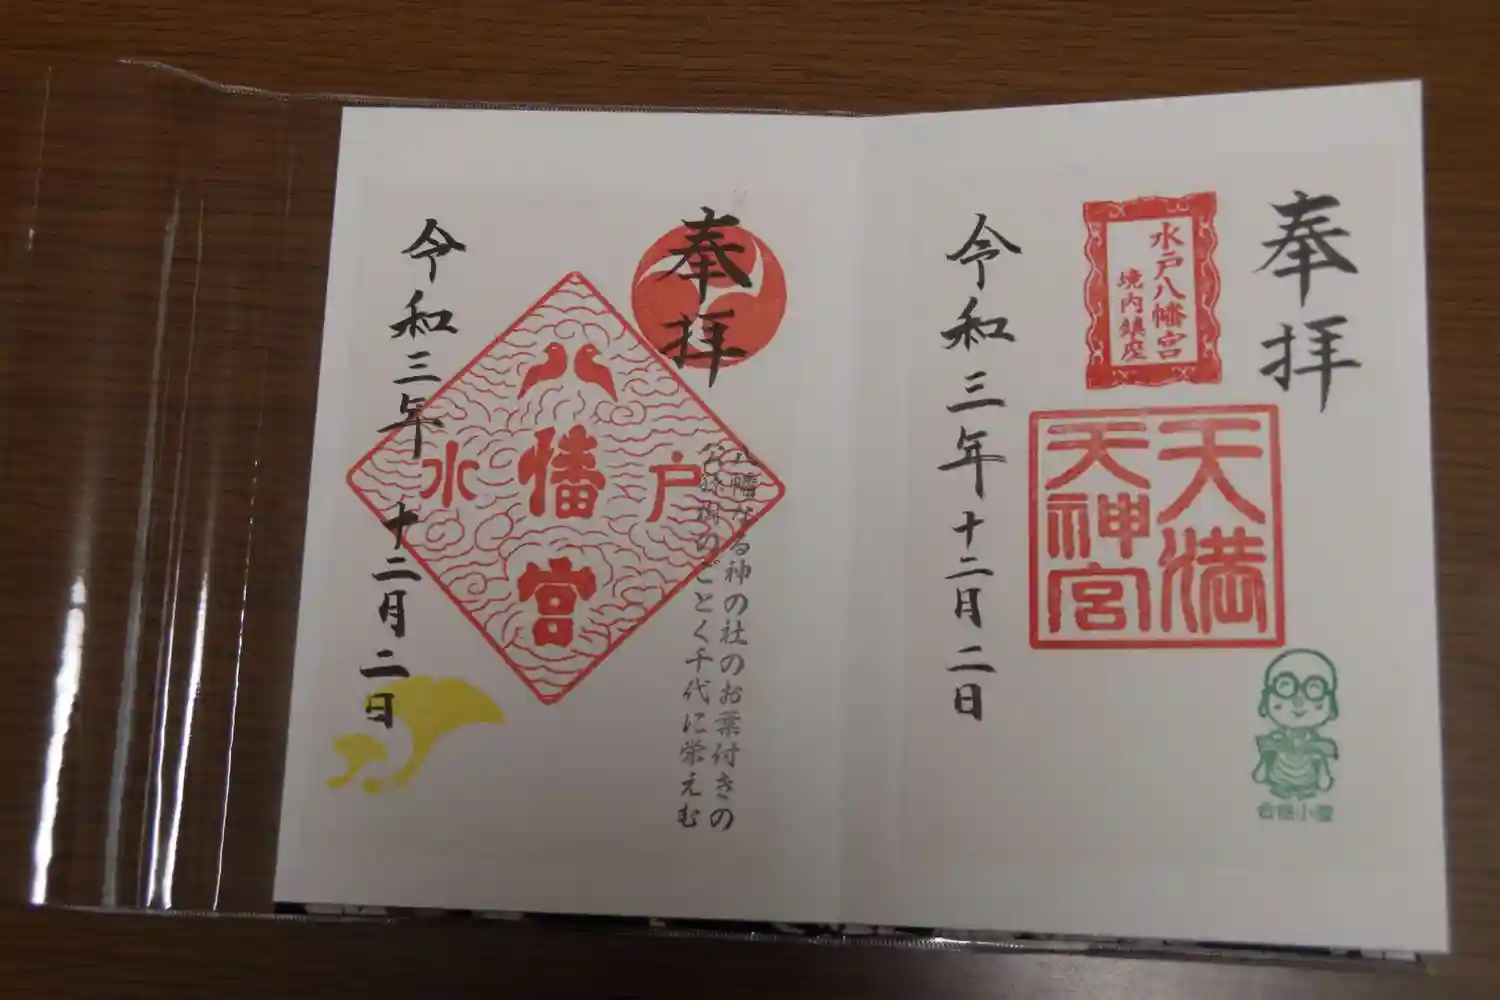 奉拝
水戸八幡宮
境内鎮座
天満
天神宮
令和三年十二月二日
合格小僧
奉拝
八幡なる神の社のお葉付きの
公孫樹のごとく千代に栄えむ
八幡宮
水戸
令和三年十二月二日